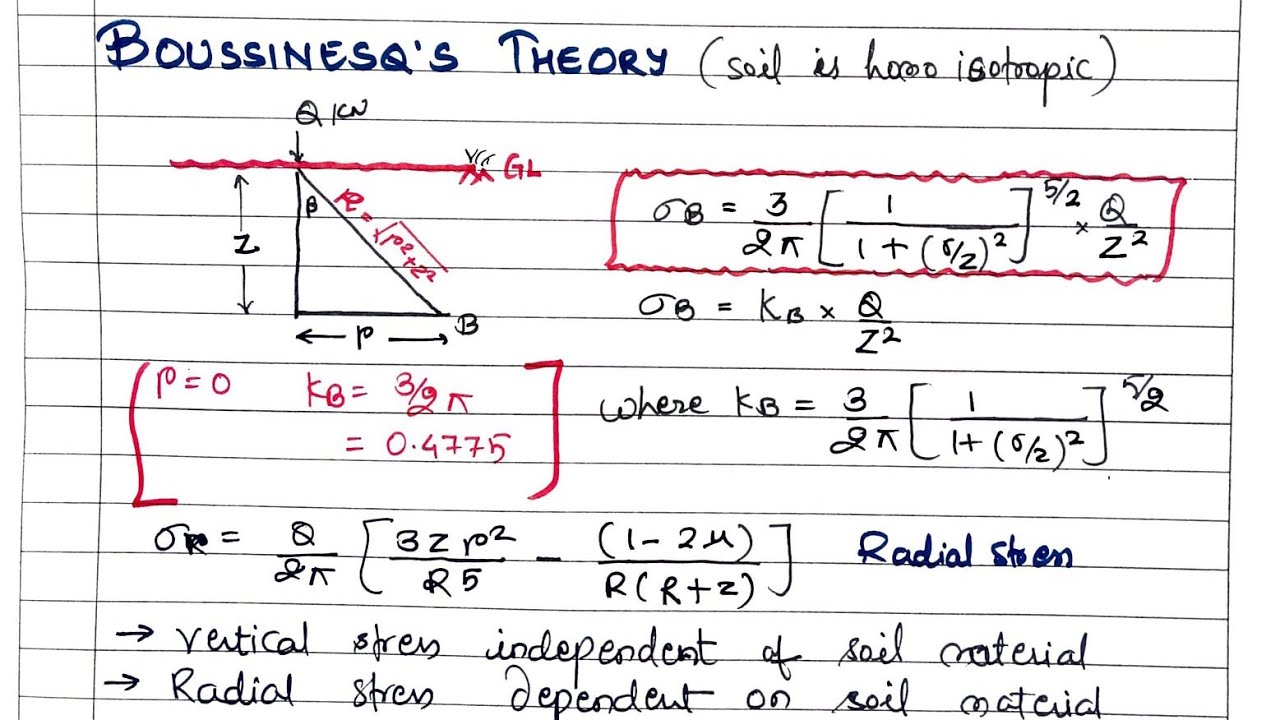 BOUSSINESQ'S THEORY (soil is homo isotropic)
Q KN
GL
β
R = √r²+z²
Z
r
B
σB = 3/2π [1/1 + (r/z)²]^5/2 × Q/Z²
σB = KB × Q/Z²
r = 0 KB = 3/2π
= 0.4775
where KB = 3/2π [1/1+(r/z)²]^5/2
σR = Q/2π [3zr²/R5 − (1-2μ)/R(R+z)] Radial stress
→ vertical stress independent of soil material
→ Radial stress dependent on soil material